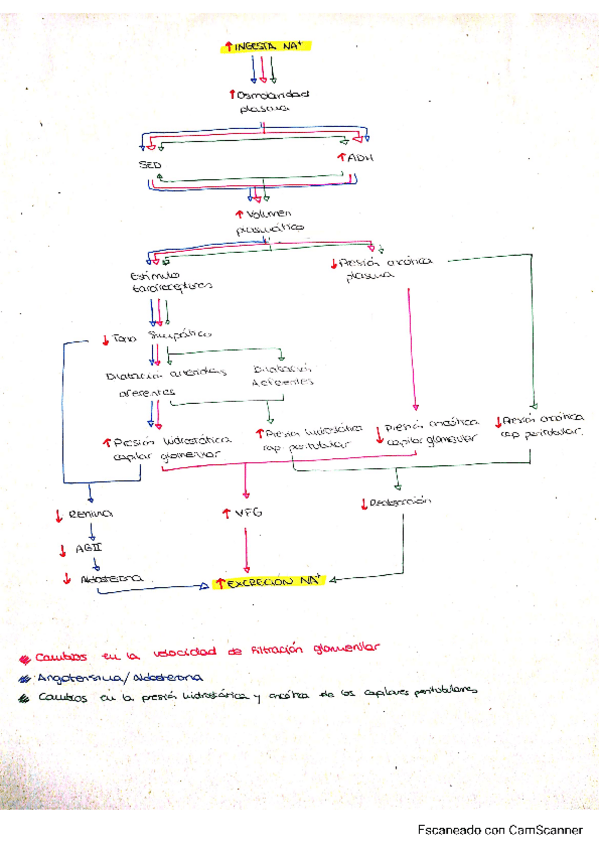 ↑ INGESTA NA⁺
↑ Osmolaridad
plasma
SED
↑ ADH
↑ Volumen
plasmático
Estímulo
barorreceptores
↓ Presión oncótica
plasma
↓ Tono Simpático
Dilatación arteriolas
aferentes
Dilatación
Aeferentes
↑ Presión hidrostática
capilar glomerular
↑ Presión hidrostática
cap peritubular
↓ Presión oncótica
capilar glomerular
↓ Presión oncótica
cap peritubular
↓ Renina
↑ VFG
↓ Reabsorción
↓ AGII
↓ Aldosterona
↑ EXCRECIÓN NA⁺
Cambios en la velocidad de filtración glomerular
Angiotensina/Aldosterona
Cambios en la presión hidrostática y oncótica de los capilares peritubulares
Escaneado con CamScanner